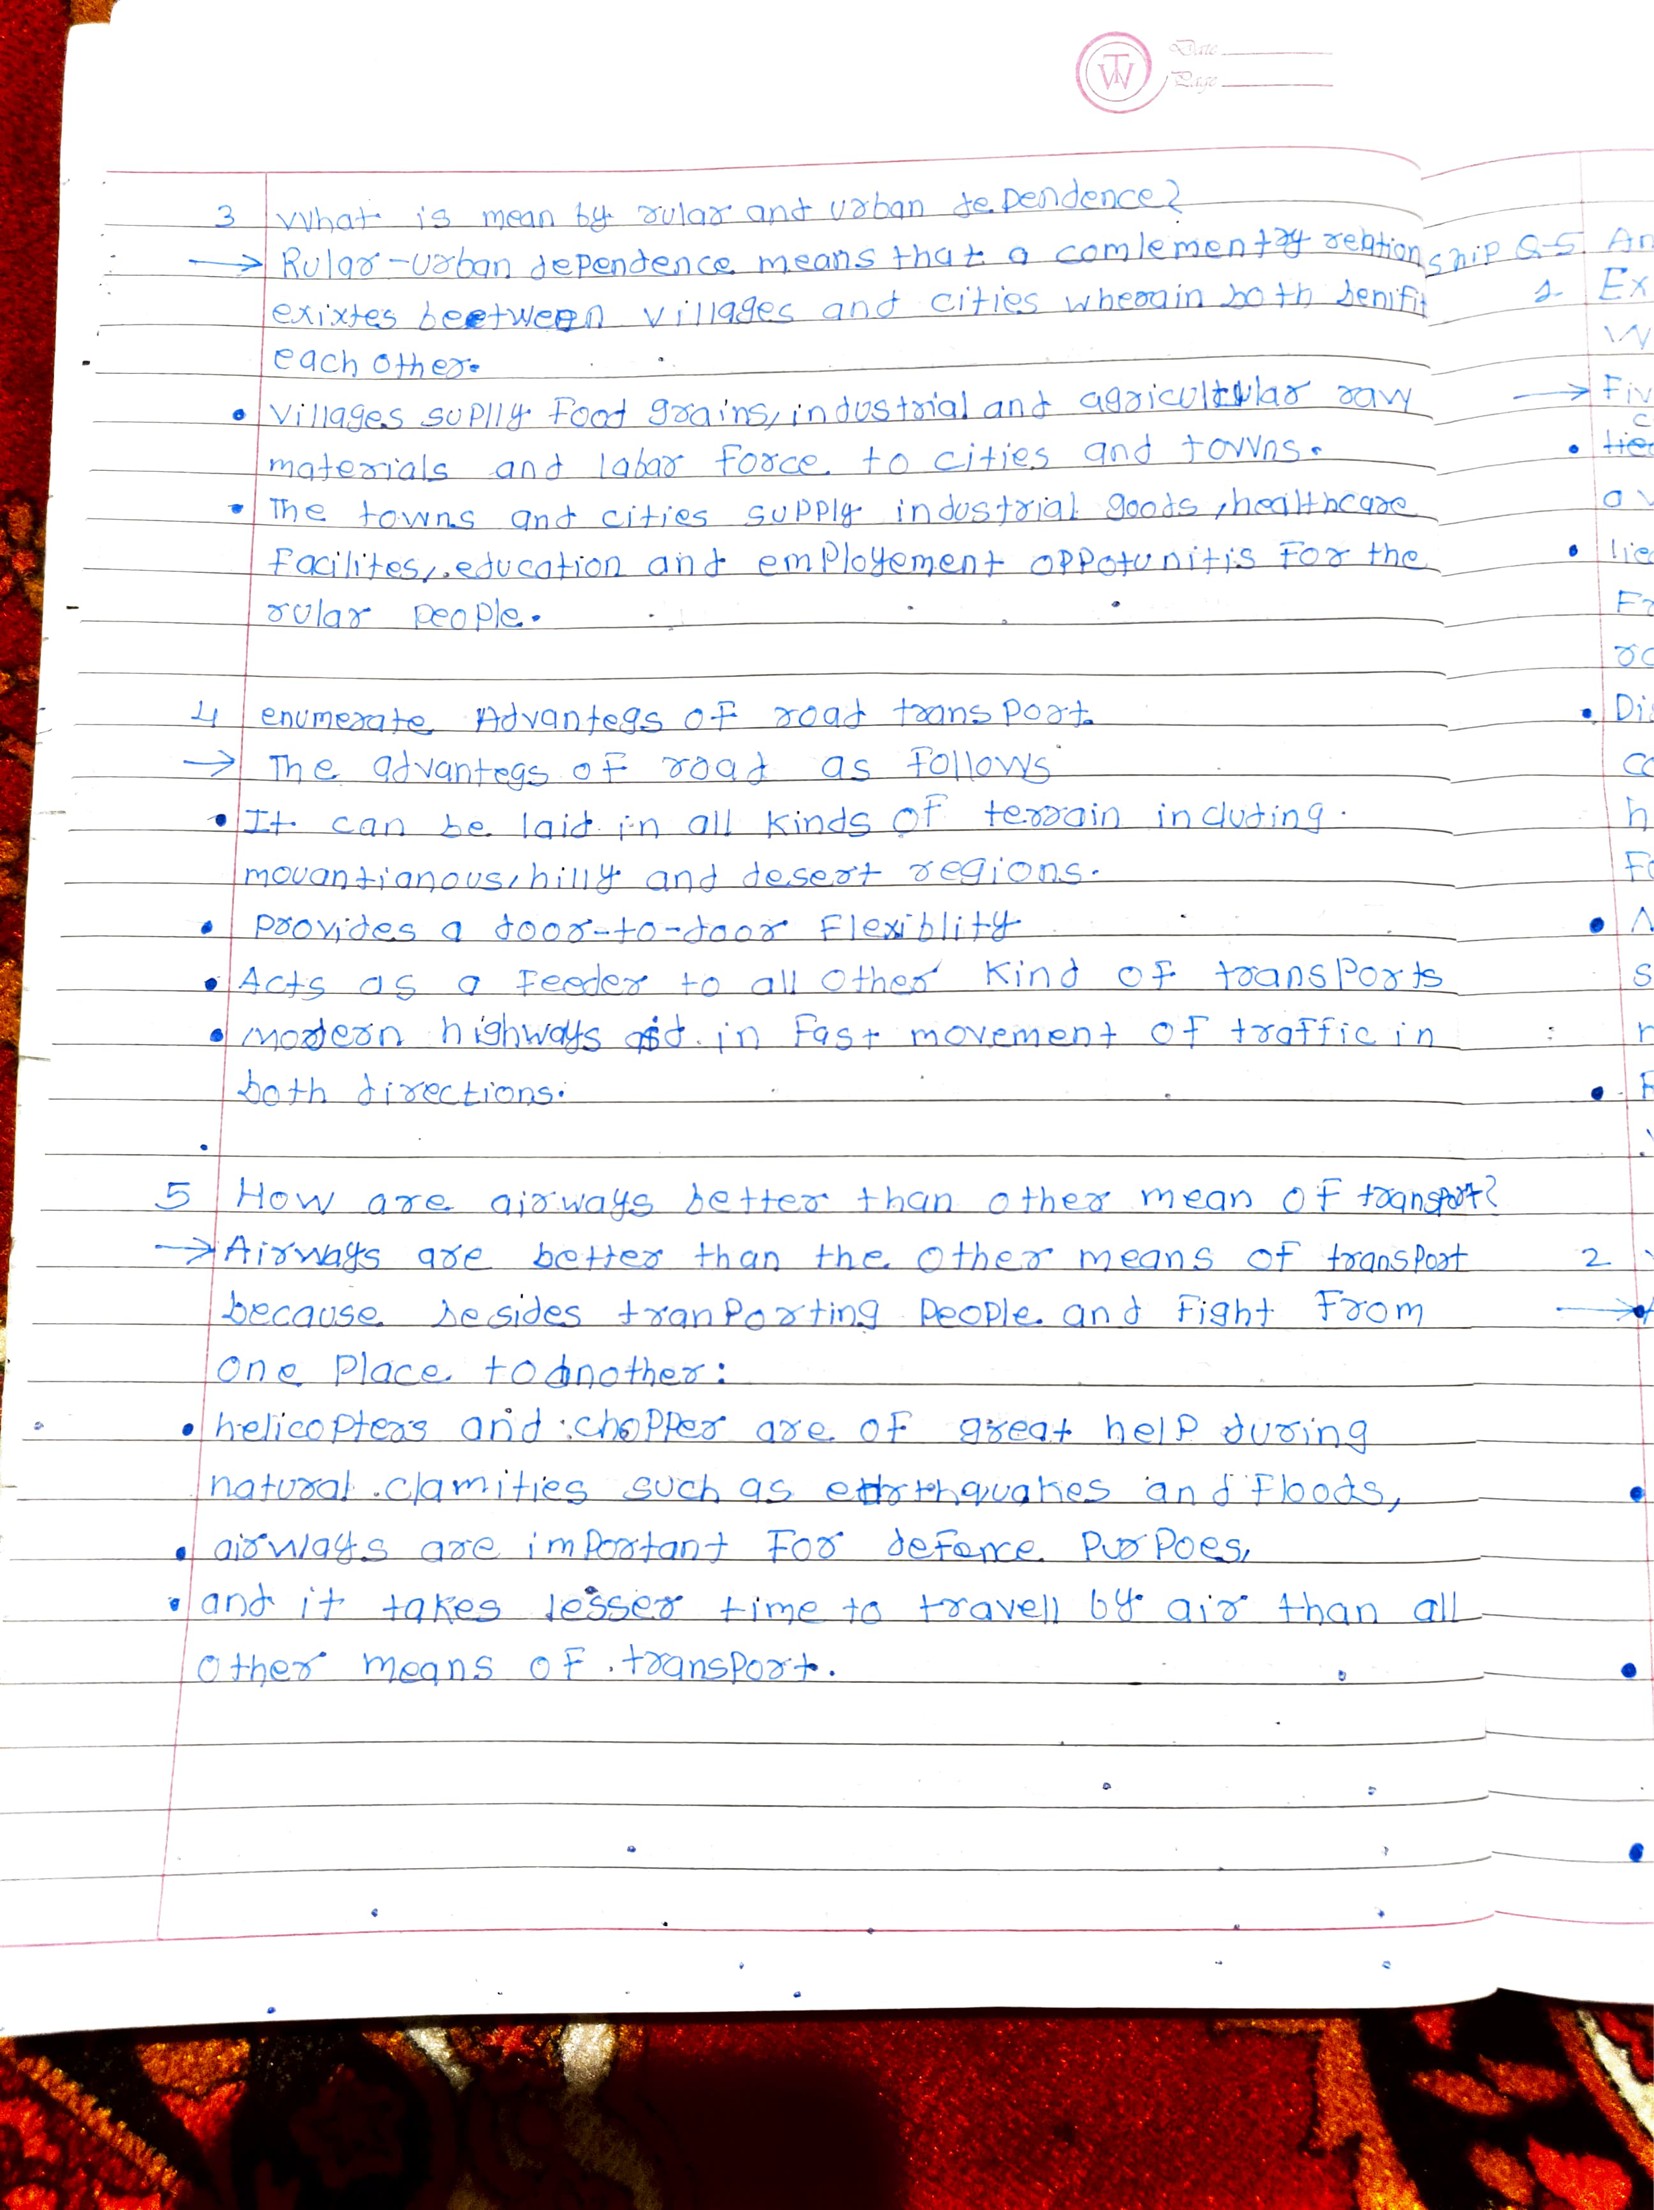 Date
Page
TW
3 What is mean by rular and urban dependence?
→ Rular-urban dependence means that a comlementry relationship
exixtes beetween villages and cities wherain both benifit
each other.
• Villages suplly food grains, industrial and agricultular raw
materials and labar force to cities and towns.
• The towns and cities supply industrial goods, healthcare
facilites, education and employement oppotunitis for the
rular people.
4 enumerate Advantegs of road transport.
→ The advantegs of road as follows
• It can be laid in all kinds of terrain including
mouantianous, hilly and desert regions.
• provides a door-to-door flexiblity
• Acts as a feeder to all other kind of transports
• modern highways aid in fast movement of traffic in
both directions.
5 How are airways better than other mean of transport?
→ Airways are better than the other means of transport
because besides tranporting people and fight from
one place to another:
• helicopters and chopper are of great help during
natural clamities such as earthquakes and floods,
• airways are important for defence purpoes,
• and it takes lesser time to travell by air than all
other means of transport.
Q-5 An
1. Ex
W
→ Fiv
• tie
av
• lie
Fr
ro
• Dis
co
h
Fo
s
r
2